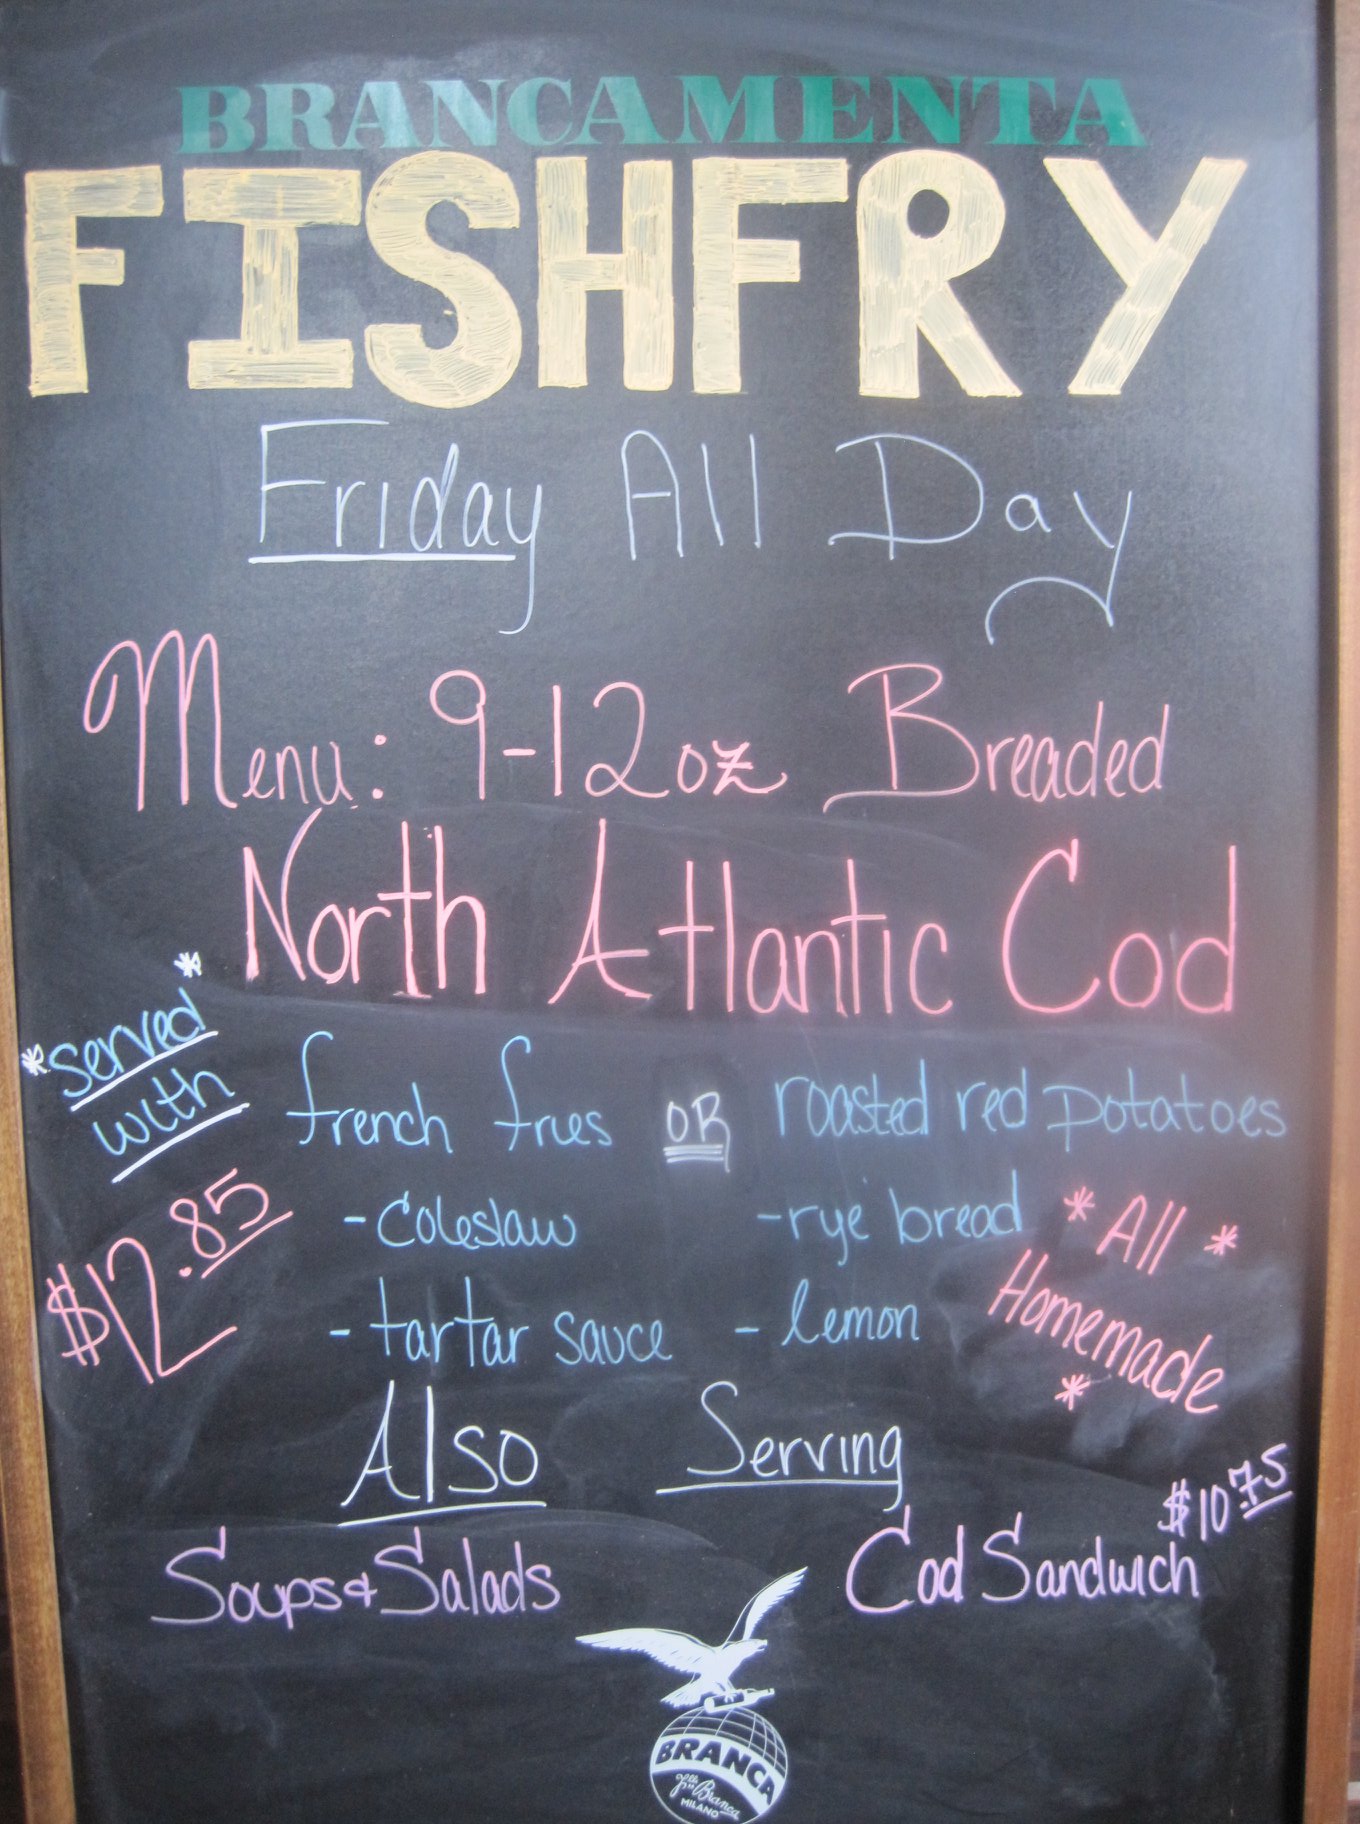 BRANCAMENTA
FISHFRY
Friday All Day
Menu: 9-12oz Breaded
North Atlantic Cod
*served*
with
french fries OR roasted red potatoes
$12.85
- coleslaw
- rye bread
- tartar sauce
- lemon
* All *
Homemade
*
Also Serving
Soups + Salads
Cod Sandwich $10.75
BRANCA
F.lli Branca
MILANO